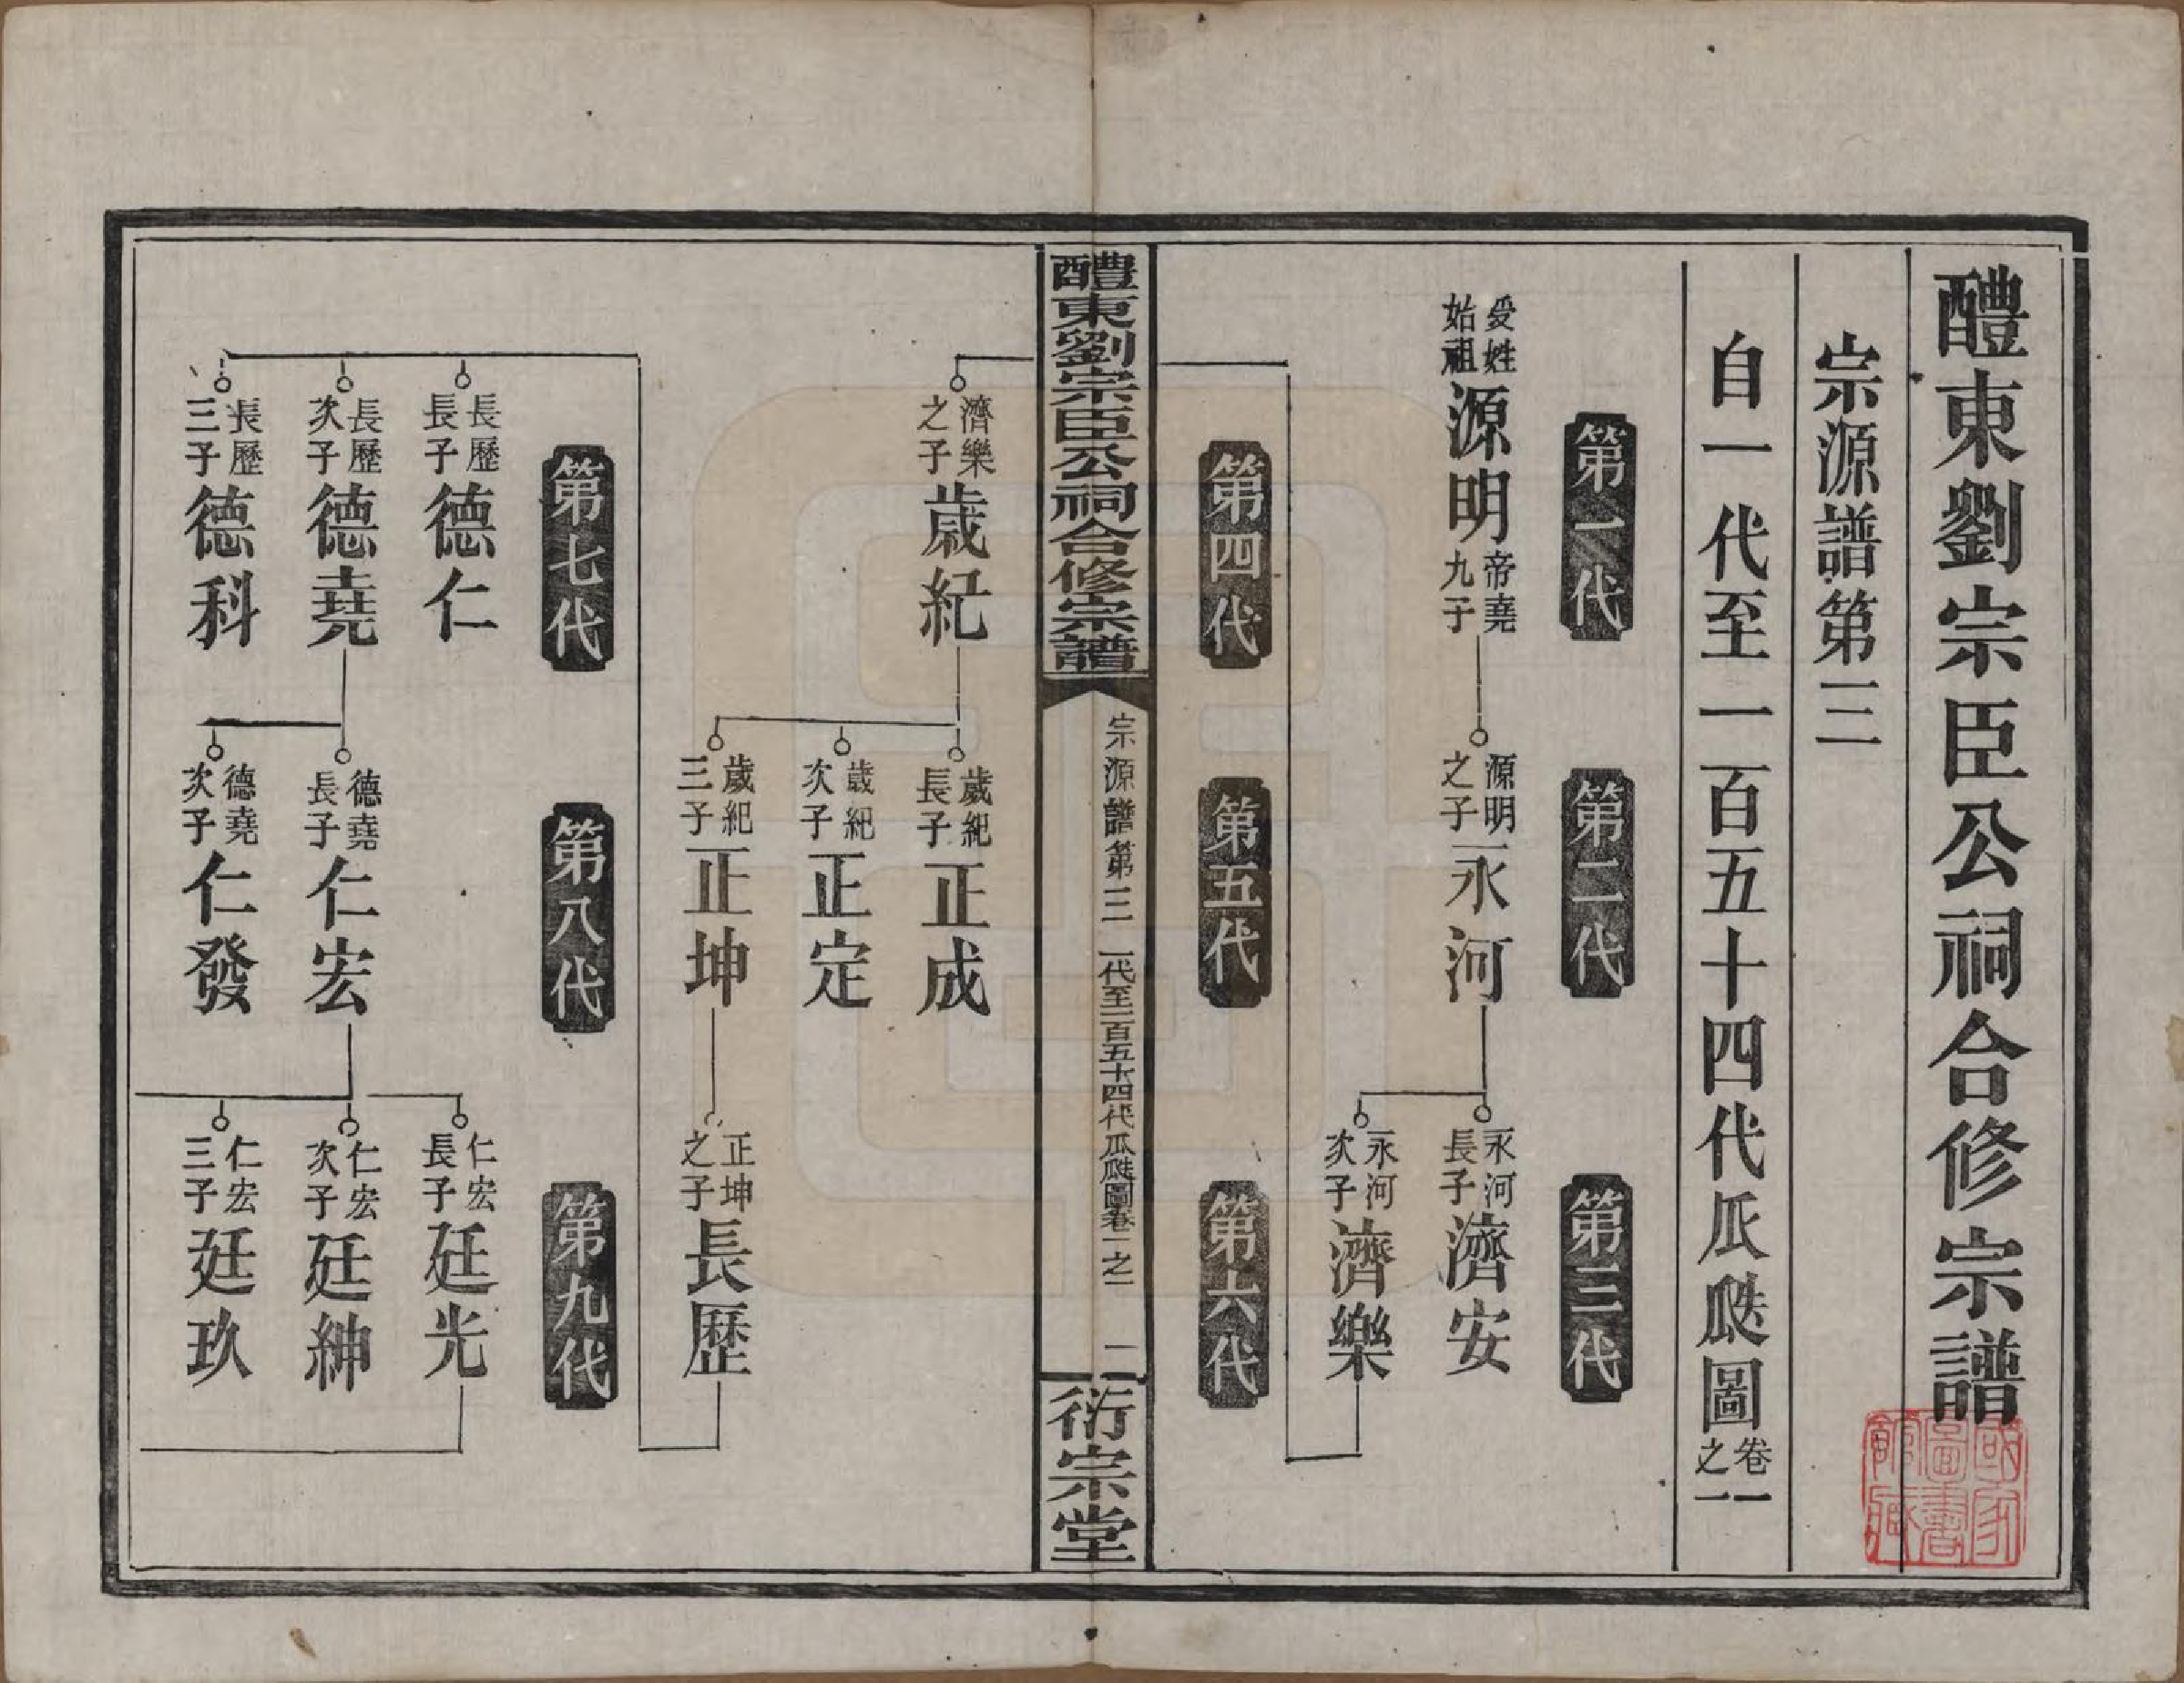 醴東劉宗臣公祠合修宗譜
宗源譜第三
自一代至一百五十四代瓜瓞圖卷一之一
第一代
第二代
第三代
受姓始祖源明帝堯九子
源明之子永河
永河長子濟安
永河次子濟樂
第四代
第五代
第六代
醴東劉宗臣公祠合修宗譜
宗源譜第三
一代至一百五十四代瓜瓞圖卷一之一
一
衍宗堂
濟樂之子歲紀
歲紀長子正成
歲紀次子正定
歲紀三子正坤
正坤之子長歷
第七代
第八代
第九代
長歷長子德仁
長歷次子德堯
長歷三子德科
德堯長子仁宏
德堯次子仁發
仁宏長子廷光
仁宏次子廷紳
仁宏三子廷玖
國家圖書館藏